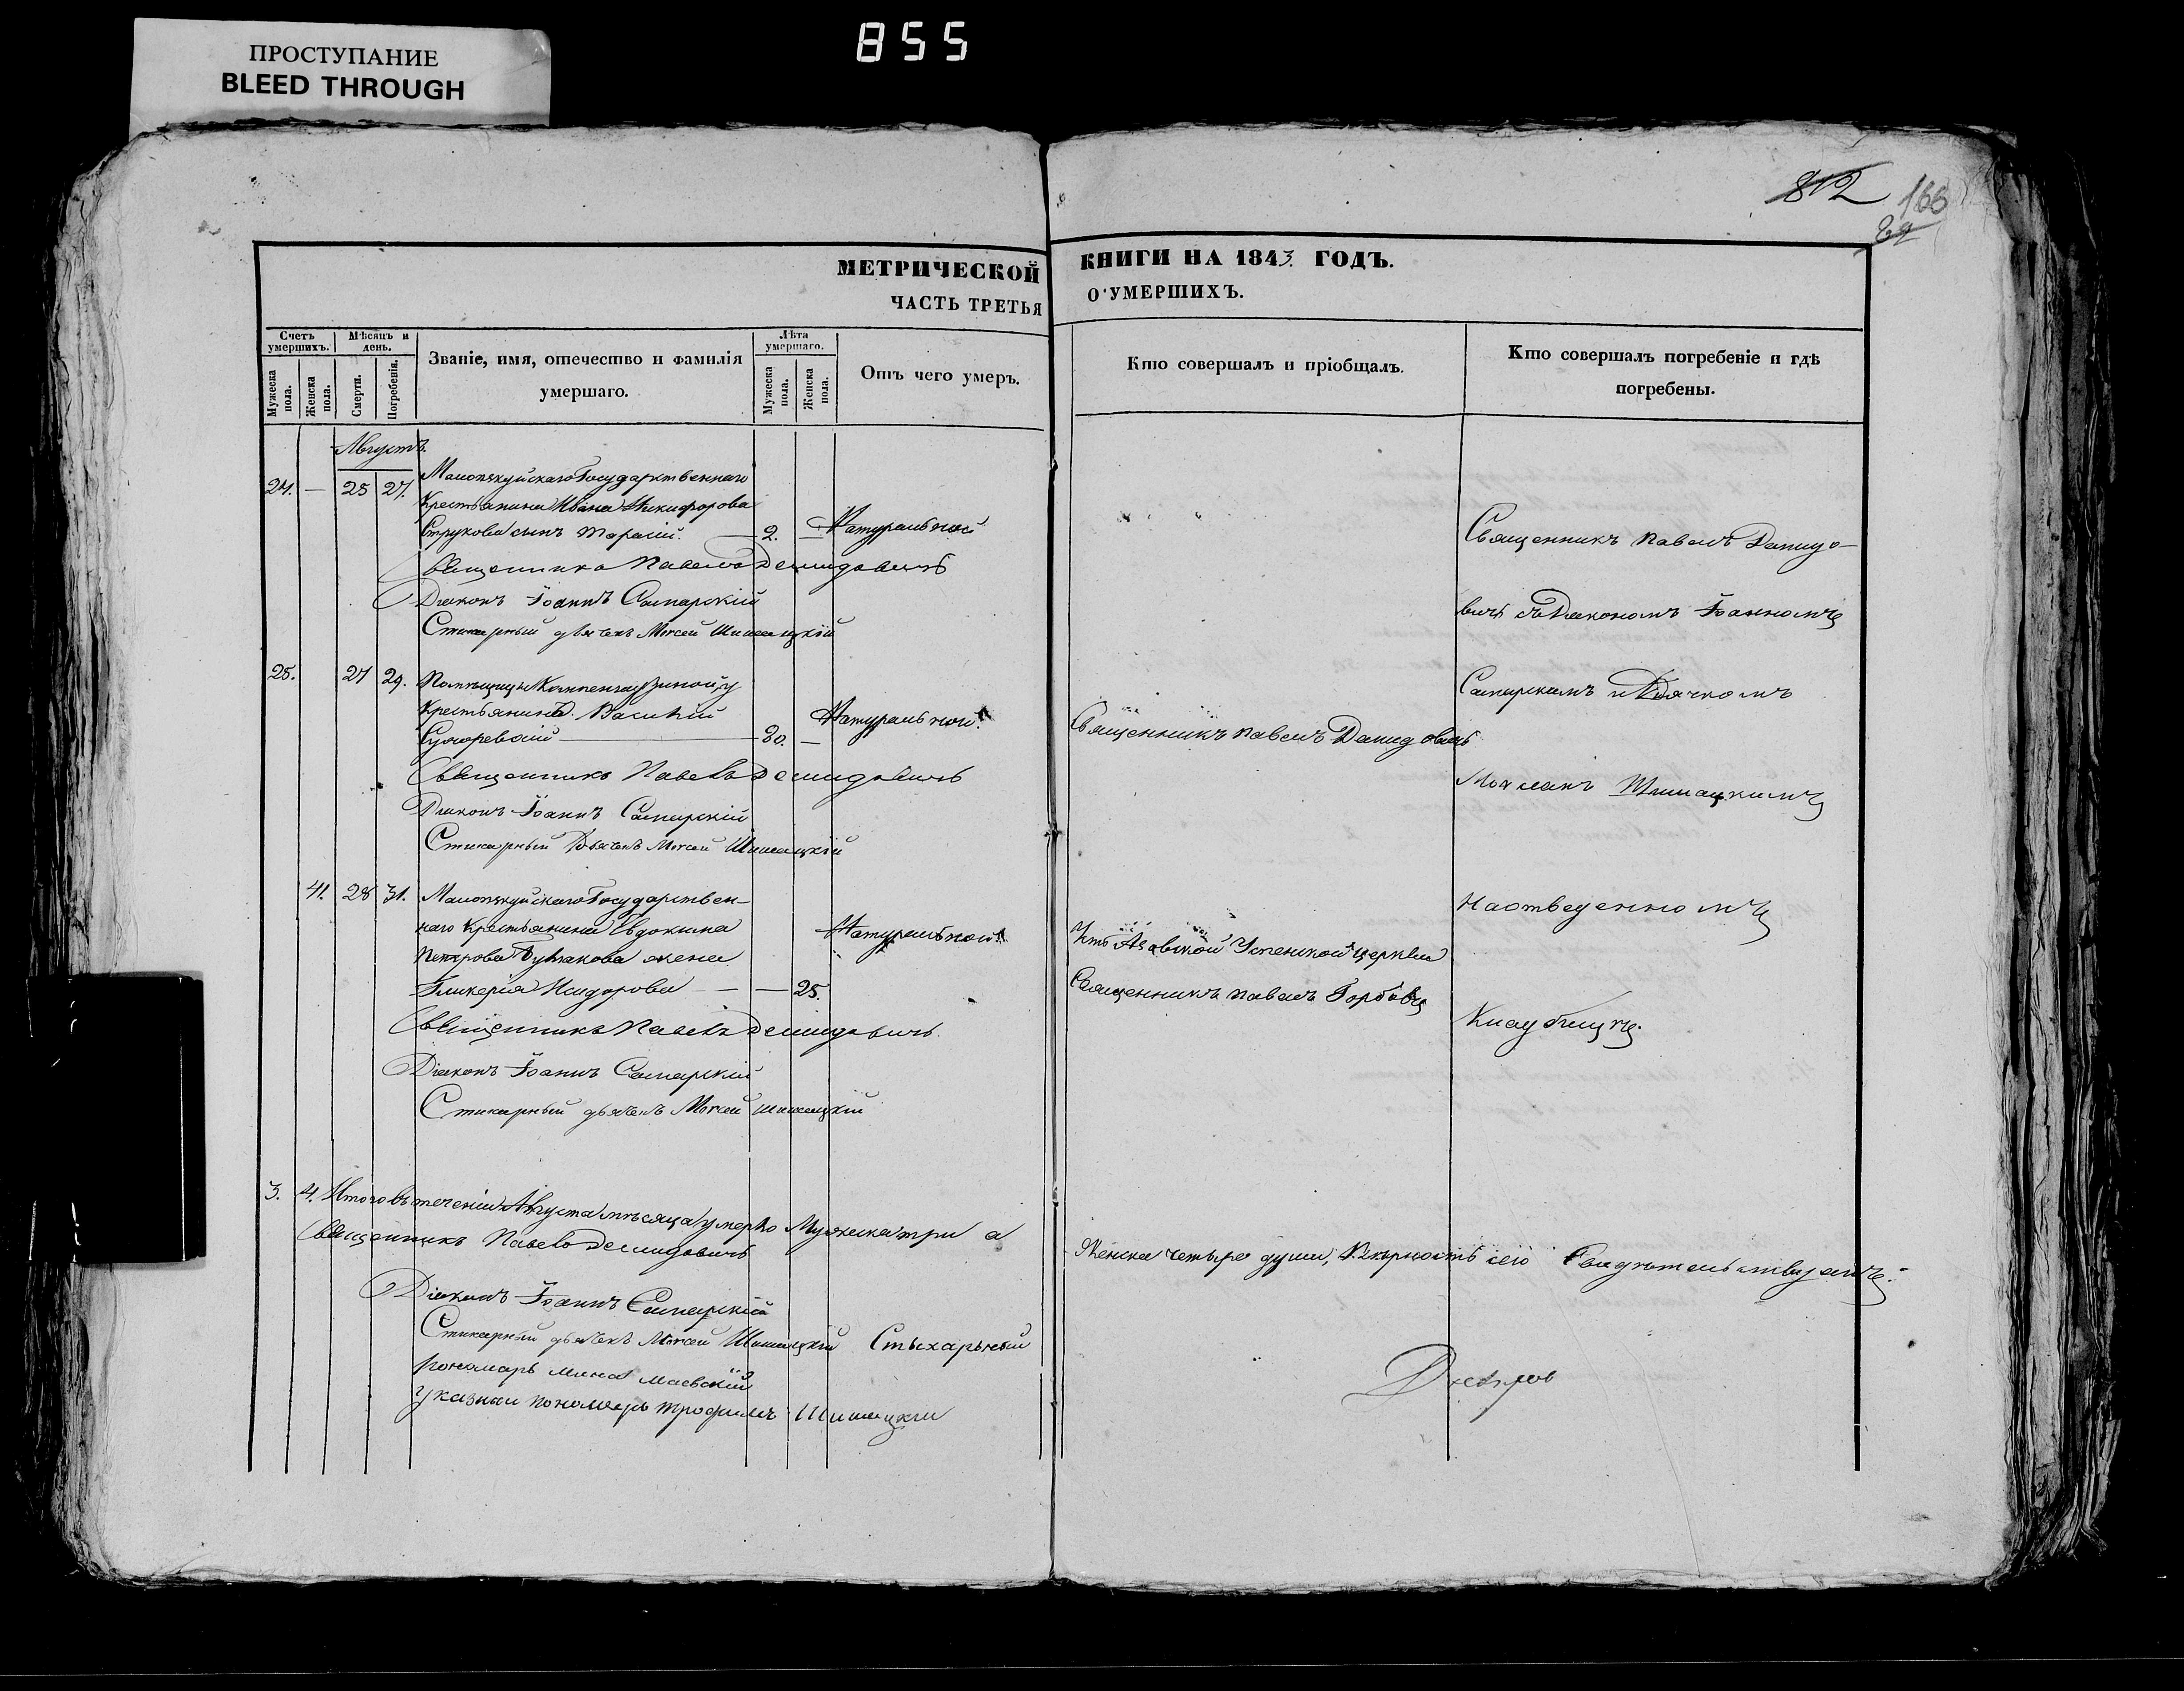 ПРОСТУПАНИЕ
BLEED THROUGH
855
812
166
МЕТРИЧЕСКОЙ КНИГИ НА 1843. ГОДЪ.
ЧАСТЬ ТРЕТЬЯ О УМЕРШИХЪ.
Счетъ умершихъ.
Мѣсяцъ и день.
Званіе, имя, отечество и фамилія умершаго.
Лѣта умершаго.
Отъ чего умеръ.
Кто совершалъ и пріобщалъ.
Кто совершалъ погребеніе и гдѣ погребены.
Мужеска пола.
Женска пола.
Смерти.
Погребенія.
Мужеска пола.
Женска пола.
Августъ.
24. — 25 27. Государственнаго
Крестьянина Ивана Никифорова
Струкова сынъ Тарасій. — 2. — Натуральной
Священникъ Павелъ Демидовичъ
Діаконъ Іоаннъ Самарскій
Стихарный дьячекъ Моисей Шишацкій
25. 27 29. Помѣщицы
Крестьянинъ Василій Натуральной
— 80. —
Священникъ Павелъ Демидовичъ
Діаконъ Іоаннъ Самарскій
Стихарный Дьячекъ Моисей Шишацкій
41. 28 31. Государствен-
наго Крестьянина Евдокима Натуральной
Петрова жена
Гликерія Исидорова — — 25.
Священникъ Павелъ Демидовичъ
Діаконъ Іоаннъ Самарскій
Стихарный дьячекъ Моисей Шишацкій
3. 4. Итого въ теченіи Августа мѣсяца умерло Мужеска три а
Священникъ Павелъ Демидовичъ
Діаконъ Іоаннъ Самарскій
Стихарный дьячекъ Моисей Шишацкій Стыхарный
пономарь Мина Маевскій
Указный пономарь Трофимъ Шишацкій
Священникъ Павелъ Демидовичъ
Азовской Успенской церкви
Священникъ Павелъ
Священникъ Павелъ Демидо-
вичъ съ Діакономъ Іоанномъ
Самарскимъ и Дьячкомъ
Моисеемъ Шишацкимъ
На отведенномъ
Кладбищѣ.
Женска четыре души, вѣрность сего Свидѣтельствуемъ.